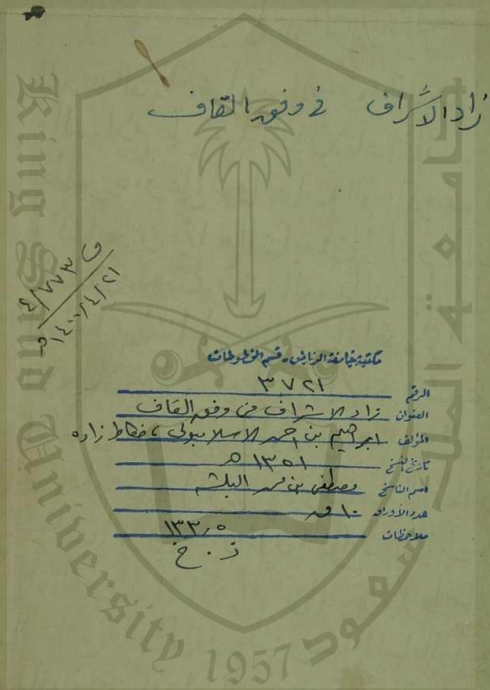 زاد الاشراف في وفق القاف
ف ٤/٧٧٣
١٤٠٠/٤/٢١ هـ
مكتبة جامعة الرياض - قسم المخطوطات
الرقم ٣٧٢١
العنوان زاد الاشراف في وفق القاف
المؤلف ابراهيم بن احمد الاسلامبولي
تاريخ النسخ ١٣٥١ هـ
اسم الناسخ مصطفى بن محمد
عدد الأوراق ١٠ ق
ملاحظات
ز . خ
King Saud University
جامعة الملك سعود
1957